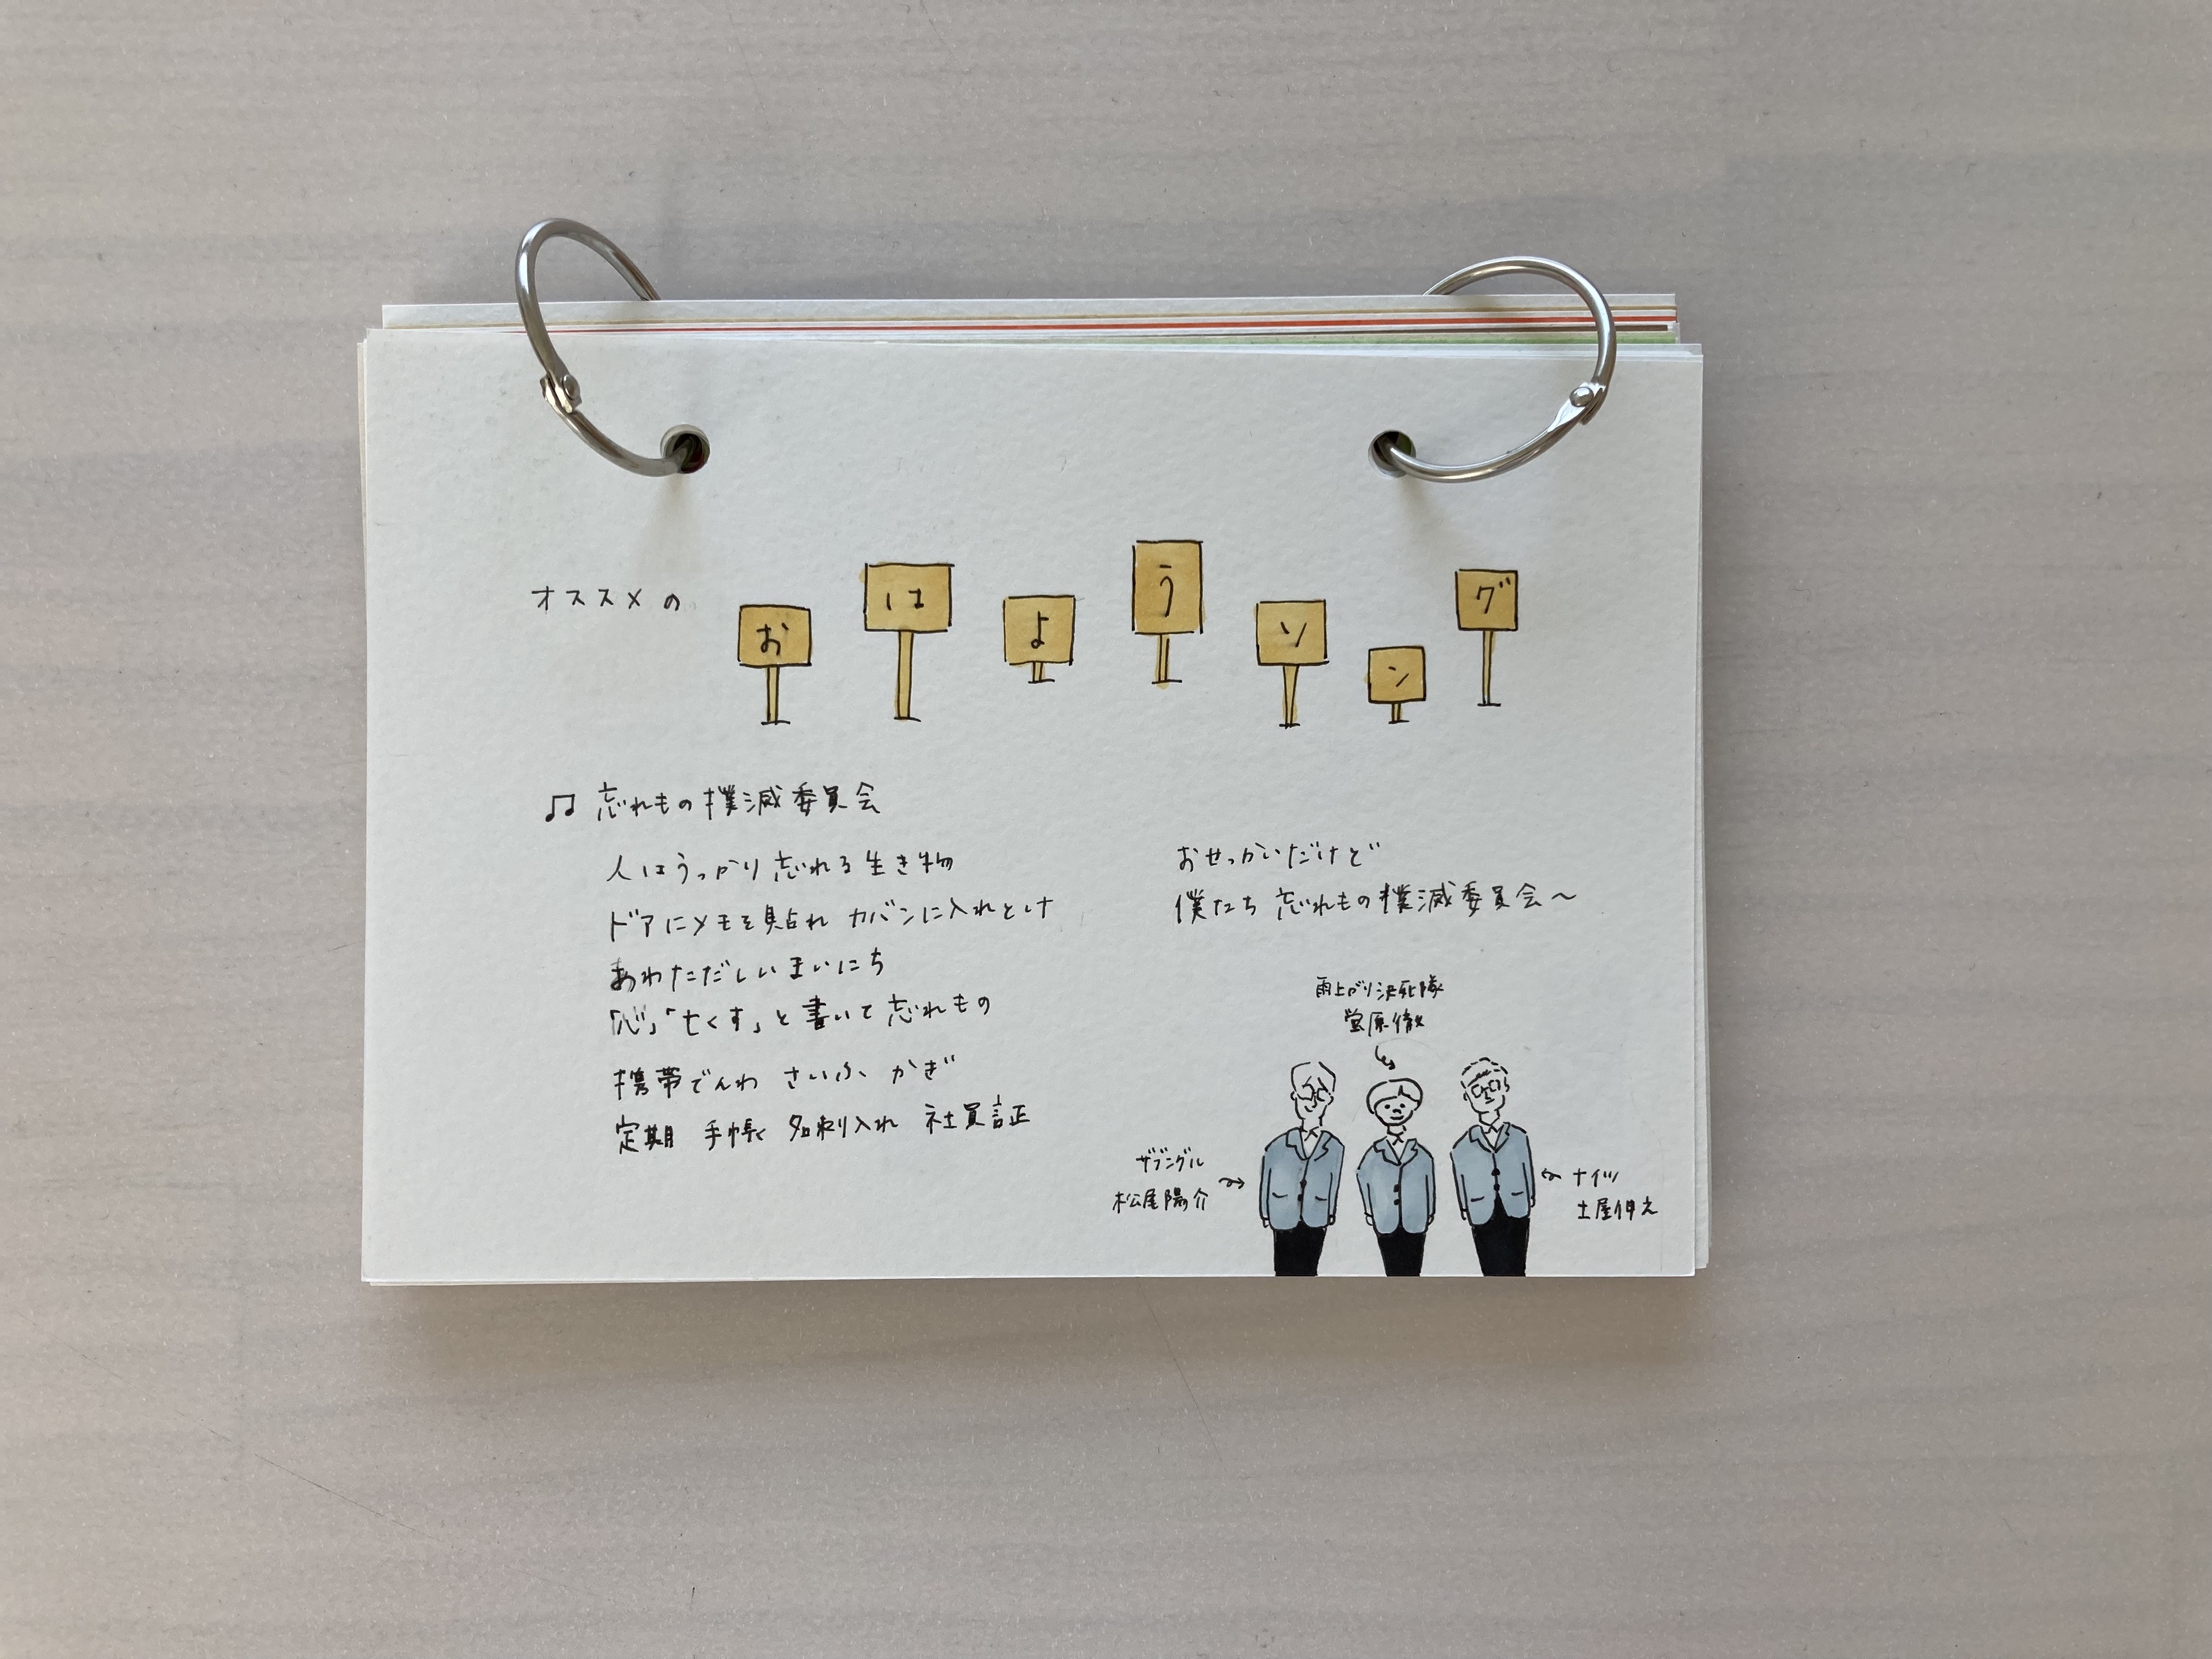 オススメの おはようソング
♫ 忘れもの撲滅委員会
人はうっかり忘れる生き物
ドアにメモを貼れ カバンに入れとけ
あわただしいまいにち
「心」「亡くす」と書いて忘れもの
携帯でんわ さいふ かぎ
定期 手帳 名刺入れ 社員証
おせっかいだけど
僕たち 忘れもの撲滅委員会〜
雨上がり決死隊
蛍原徹
ザブングル
松尾陽介
ナイツ
土屋伸之